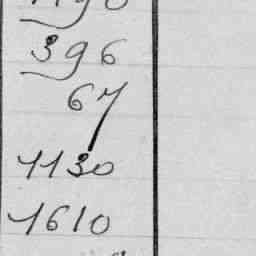 396
67
1130
1610